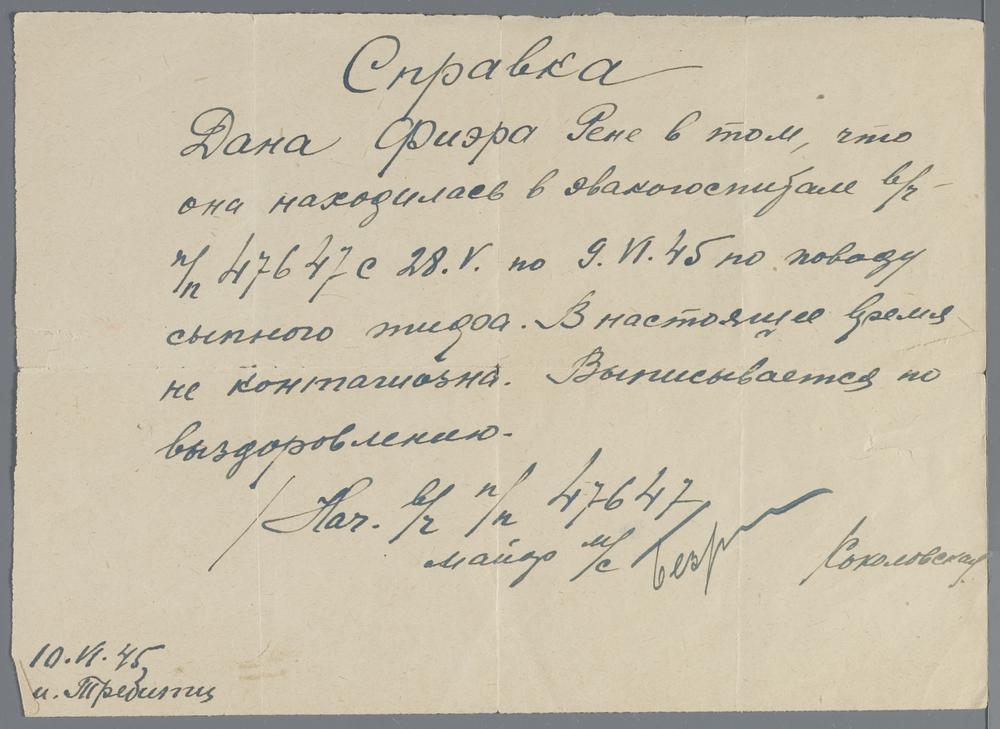 Справка
Дана Фиэра Рене в том, что
она находилась в эвакогоспитале в/ч-
п/п 47647 с 28.V. по 9.VI.45 по поводу
сыпного тифа. В настоящее время
не контагиозна. Выписывается по
выздоровлению.
/ Нач. в/ч п/п 47647
майор м/с
Соколовская
10.VI.45
м. Требитц